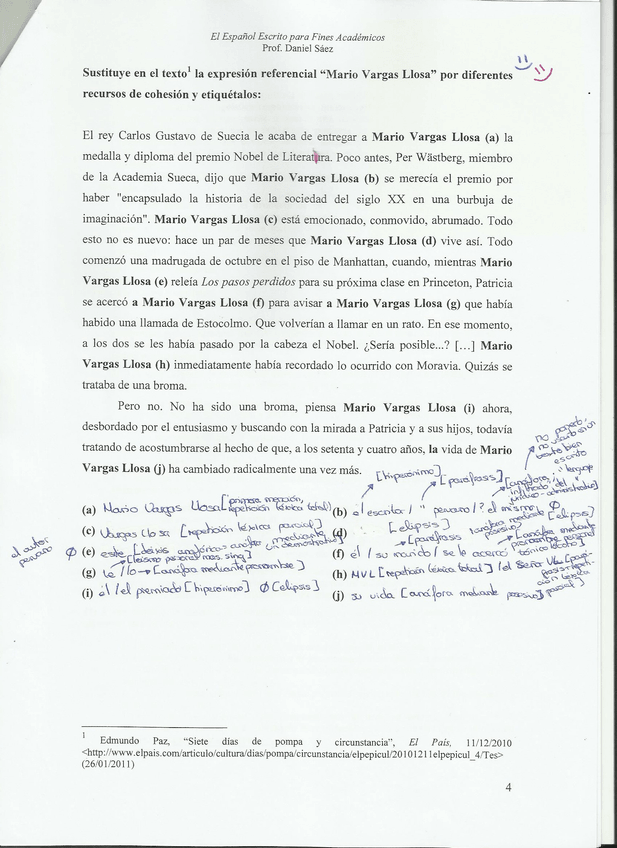 El Español Escrito para Fines Académicos
Prof. Daniel Sáez
Sustituye en el texto¹ la expresión referencial “Mario Vargas Llosa” por diferentes
recursos de cohesión y etiquétalos:
El rey Carlos Gustavo de Suecia le acaba de entregar a Mario Vargas Llosa (a) la
medalla y diploma del premio Nobel de Literatura. Poco antes, Per Wästberg, miembro
de la Academia Sueca, dijo que Mario Vargas Llosa (b) se merecía el premio por
haber "encapsulado la historia de la sociedad del siglo XX en una burbuja de
imaginación". Mario Vargas Llosa (c) está emocionado, conmovido, abrumado. Todo
esto no es nuevo: hace un par de meses que Mario Vargas Llosa (d) vive así. Todo
comenzó una madrugada de octubre en el piso de Manhattan, cuando, mientras Mario
Vargas Llosa (e) releía Los pasos perdidos para su próxima clase en Princeton, Patricia
se acercó a Mario Vargas Llosa (f) para avisar a Mario Vargas Llosa (g) que había
habido una llamada de Estocolmo. Que volverían a llamar en un rato. En ese momento,
a los dos se les había pasado por la cabeza el Nobel. ¿Sería posible...? [...] Mario
Vargas Llosa (h) inmediatamente había recordado lo ocurrido con Moravia. Quizás se
trataba de una broma.
Pero no. No ha sido una broma, piensa Mario Vargas Llosa (i) ahora,
desbordado por el entusiasmo y buscando con la mirada a Patricia y a sus hijos, todavía
tratando de acostumbrarse al hecho de que, a los setenta y cuatro años, la vida de Mario
Vargas Llosa (j) ha cambiado radicalmente una vez más.
[hiperónimo] [paráfrasis]
(a) Mario Vargas Llosa [primera mención, repetición léxica total] (b) el escritor / " peruano / ? el mismo
(c) Vargas Llosa [repetición léxica parcial] (d) Ø [elipsis]
el autor peruano Ø (e) este [deixis anafórica: anáfora mediante un demostrativo]
(f) él / su marido / se le acercó
(g) le / lo → [anáfora mediante pronombre] (h) MVL [repetición léxica total] / el Señor VLl
(i) él / el premiado [hiperónimo] Ø [elipsis] (j) su vida [anáfora mediante posesivo]
1 Edmundo Paz, “Siete días de pompa y circunstancia”, El País, 11/12/2010
<http://www.elpais.com/articulo/cultura/dias/pompa/circunstancia/elpepicul/20101211elpepicul_4/Tes>
(26/01/2011)
4